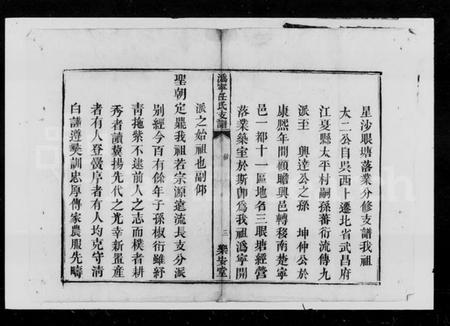 星沙眼塘落業分修支譜我祖
大二公自吳西上遷北省武昌府
江夏縣太平村嗣孫蕃衍流傳九
派至 興達公之孫 坤仲公於
康熙年間傾贍興邑轉移南楚寧
邑一都十一區地名三眼塘經營
落業築室於斯即為我祖溈寧開
溈寧任氏支譜
三
樂安堂
派之始祖也副仰
聖朝定鼎我祖若宗源遠流長支分派
別經今百有餘年子孫椒衍雖紆
青拖紫不逮前人之志而樸者耕
秀者讀冀揚先代之光幸新置產
者有人登黌序者有人均克守清
白謙遵奬訓忠厚傳家農服先疇